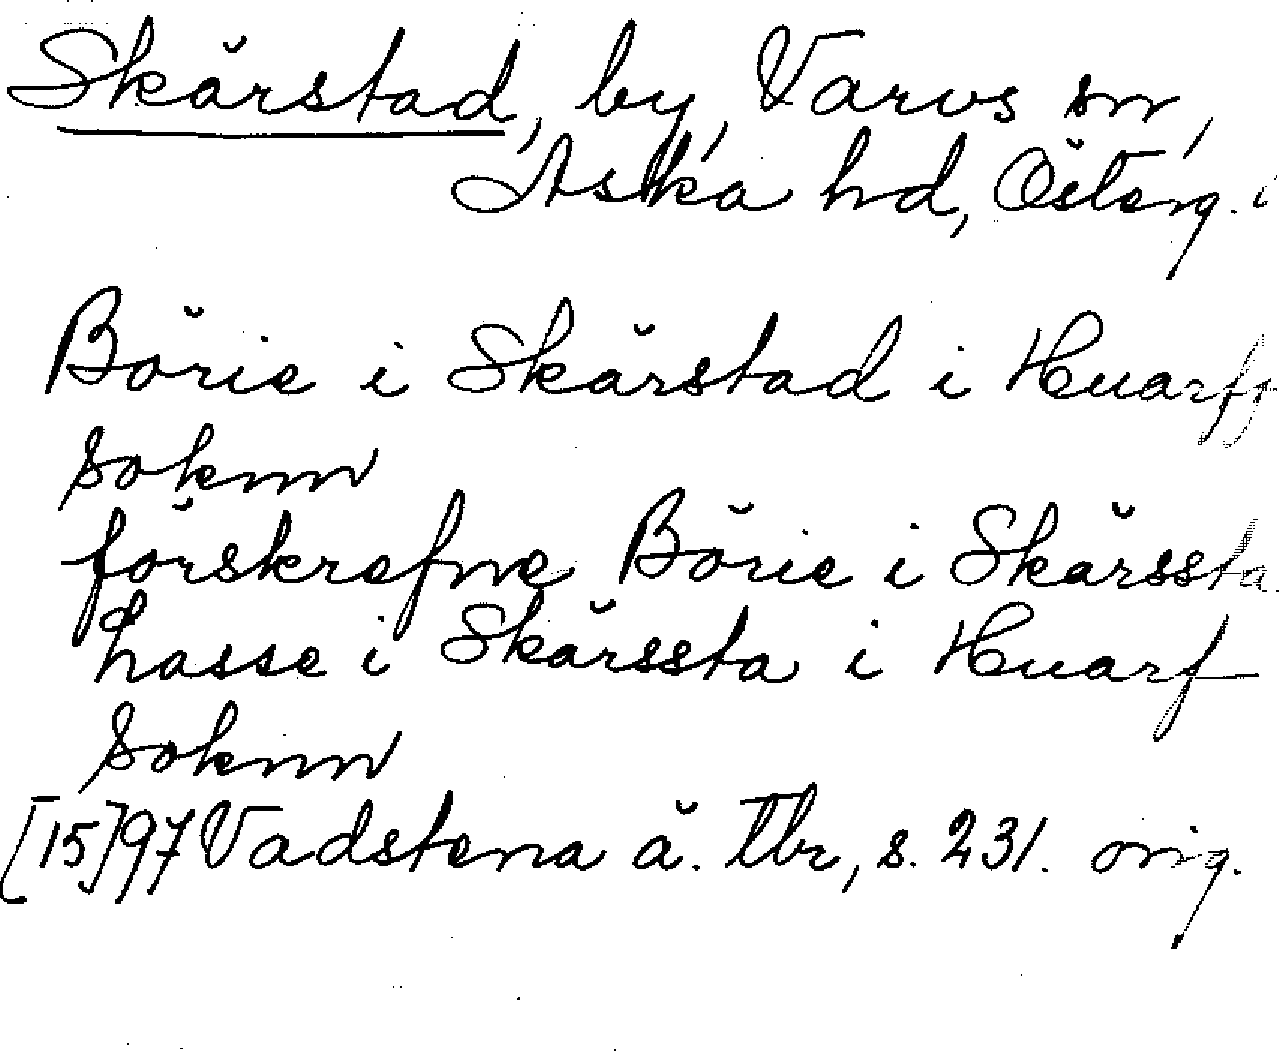 Skärstad, by, Varvs sn,
Aska hd, Österg.
Börie i Skärstad i Huarfz
soknn
förskrefne Börie i Skärssta
Lasse i Skärssta i Huarf
Soknn
[15]97 Vadstena ä. tbr, s. 231. orig.